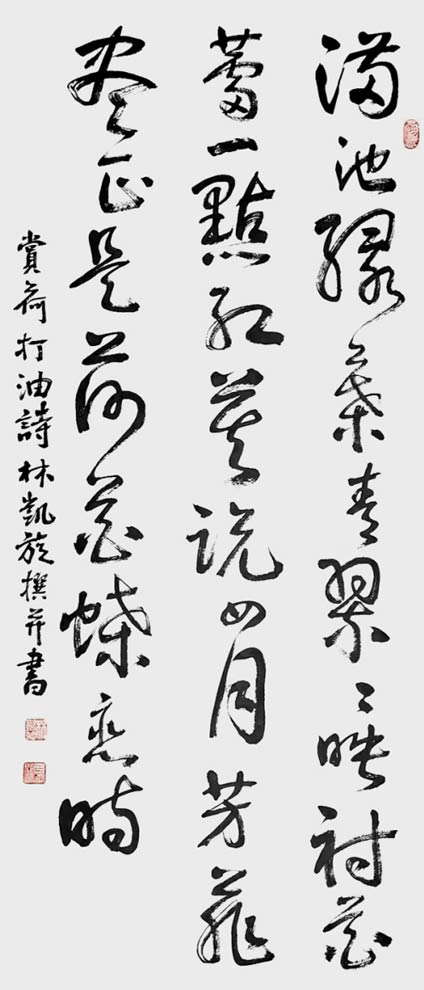 滿池綠葉青翠〻映衬花
蕾一點紅莫説四月芳菲
尽正是荷花蝶恋時
賞荷打油詩林凱旋撰并書